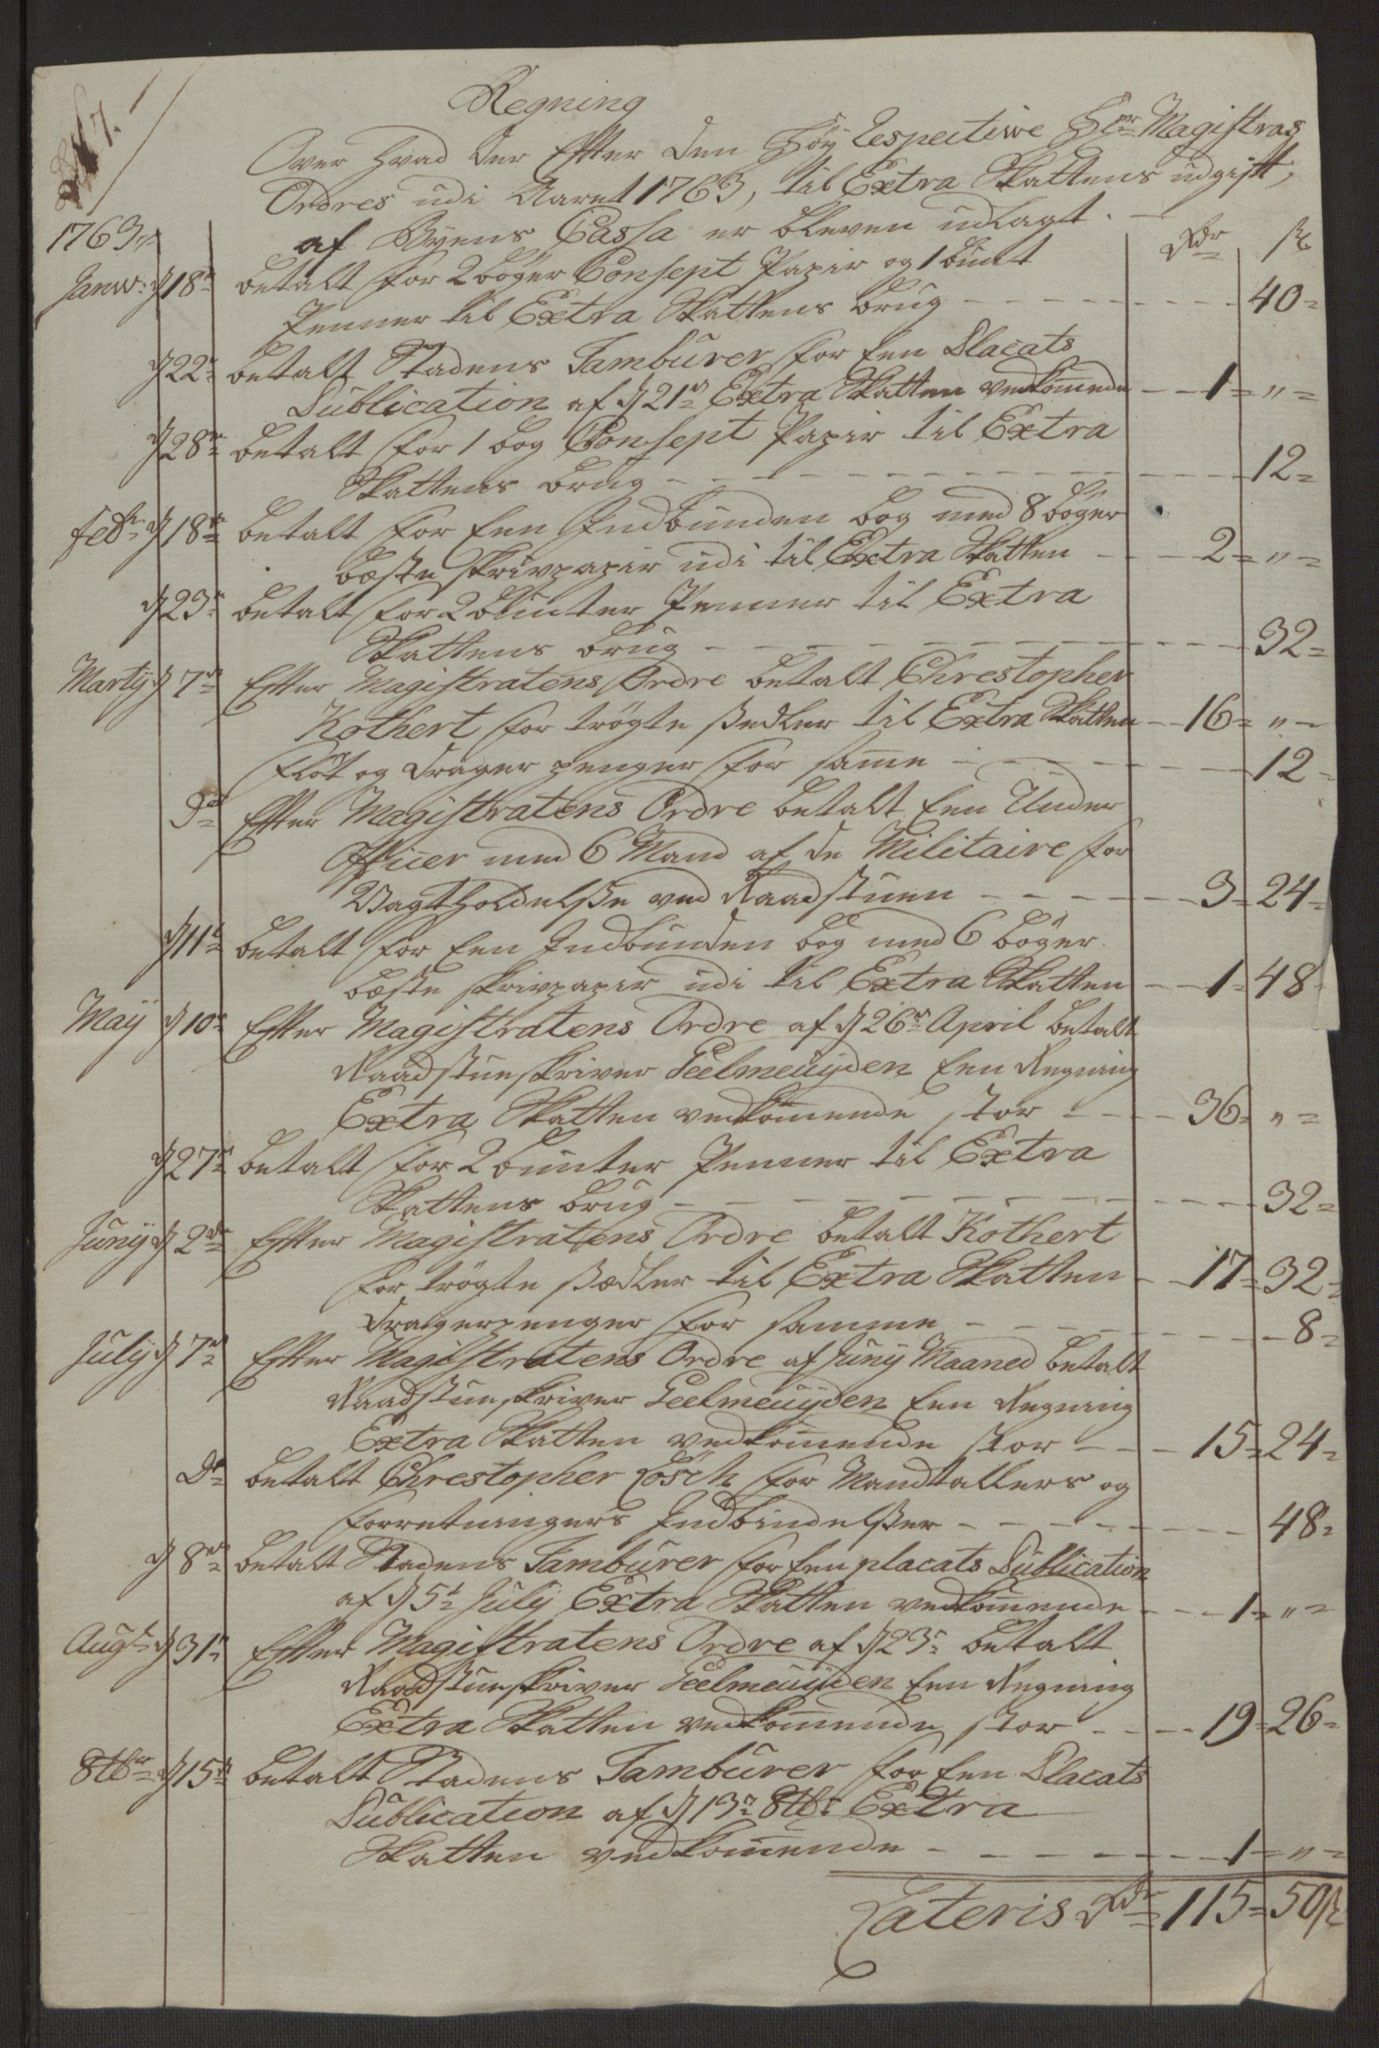 No 7.
Regning
Over hvad der Efter den Höy Respective Hr Magistrats
Ordres udi Aaret 1763, til Extra Skattens udgift,
af Byens Cassa er bleven udlagt.
1763 Rdr ß
Janv: d 18de betalt for 2 böger Consept Papir og 1 bunt
Penner til Extra Skattens brug - - - 40 =
d 22de betalt Stadens Tambürer for Een Placats
Püblication af d 21de Extra Skatten vedkom̄ende - - 1 = „ =
d 28de betalt for 1 bog Consept Papir til Extra
Skattens brug - - - 12 =
Febr d 18de betalt for Een Indbunden bog med 8 böger
beste skrivpapir udi til Extra Skatten - - 2 = „ =
d 23de betalt for 2 bunter Penner til Extra
Skattens brug - - - 32 =
Marty d 7de Efter Magistratens Ordre betalt Chrestopher
Kothert for trögte Sedler til Extra Skatten - 16 = „ =
fløt og drager penger for sam̄e - - - 12 =
Do Efter Magistratens Ordre betalt Een Under
Officer med 6 Mand af de Militaire for
Vagtholdelse ved Raadstuen - - - 3 = 24 =
d 11te betalt for Een Indbunden bog med 6 böger
beste skrivpapir udi til Extra Skatten - - 1 = 48 =
Maÿ d 10de Efter Magistratens Ordre af d 26de April betalt
Raadstueskriver Geelmeuyden Een Regning
Extra Skatten vedkom̄ende stor - - - 36 = „ =
d 27de betalt for 2 bunter Penner til Extra
Skattens brug - - - 32 =
Juny d 2de Efter Magistratens Ordre betalt Kothert
for trögte Sedler til Extra Skatten - 17 = 32 =
dragerpenger for samme - - - 8 =
July d 7de Efter Magistratens Ordre af Juny Maaned betalt
Raadstueskriver Geelmeuyden Een Regning
Extra Skatten vedkom̄ende stor - - - 15 = 24 =
Do betalt Chrestopher Lösch for Mandtallers og
forretningers Indbindelser - - - 48 =
d 8de betalt Stadens Tambürer for Een placats Püblication
af d 5te July Extra Skatten vedkom̄ende - - - 1 = „ =
Augt d 31te Efter Magistratens Ordre af d 23de betalt
Raadstueskriver Geelmeuyden Een Regning
Extra Skatten vedkom̄ende stor - - - 19 = 26 =
8tbr d 15de betalt Stadens Tambürer for Een Placats
Püblication af d 13de 8tbr Extra
Skatten vedkom̄ende - - - 1 = „ =
Lateris Rdr 115 = 50 ß